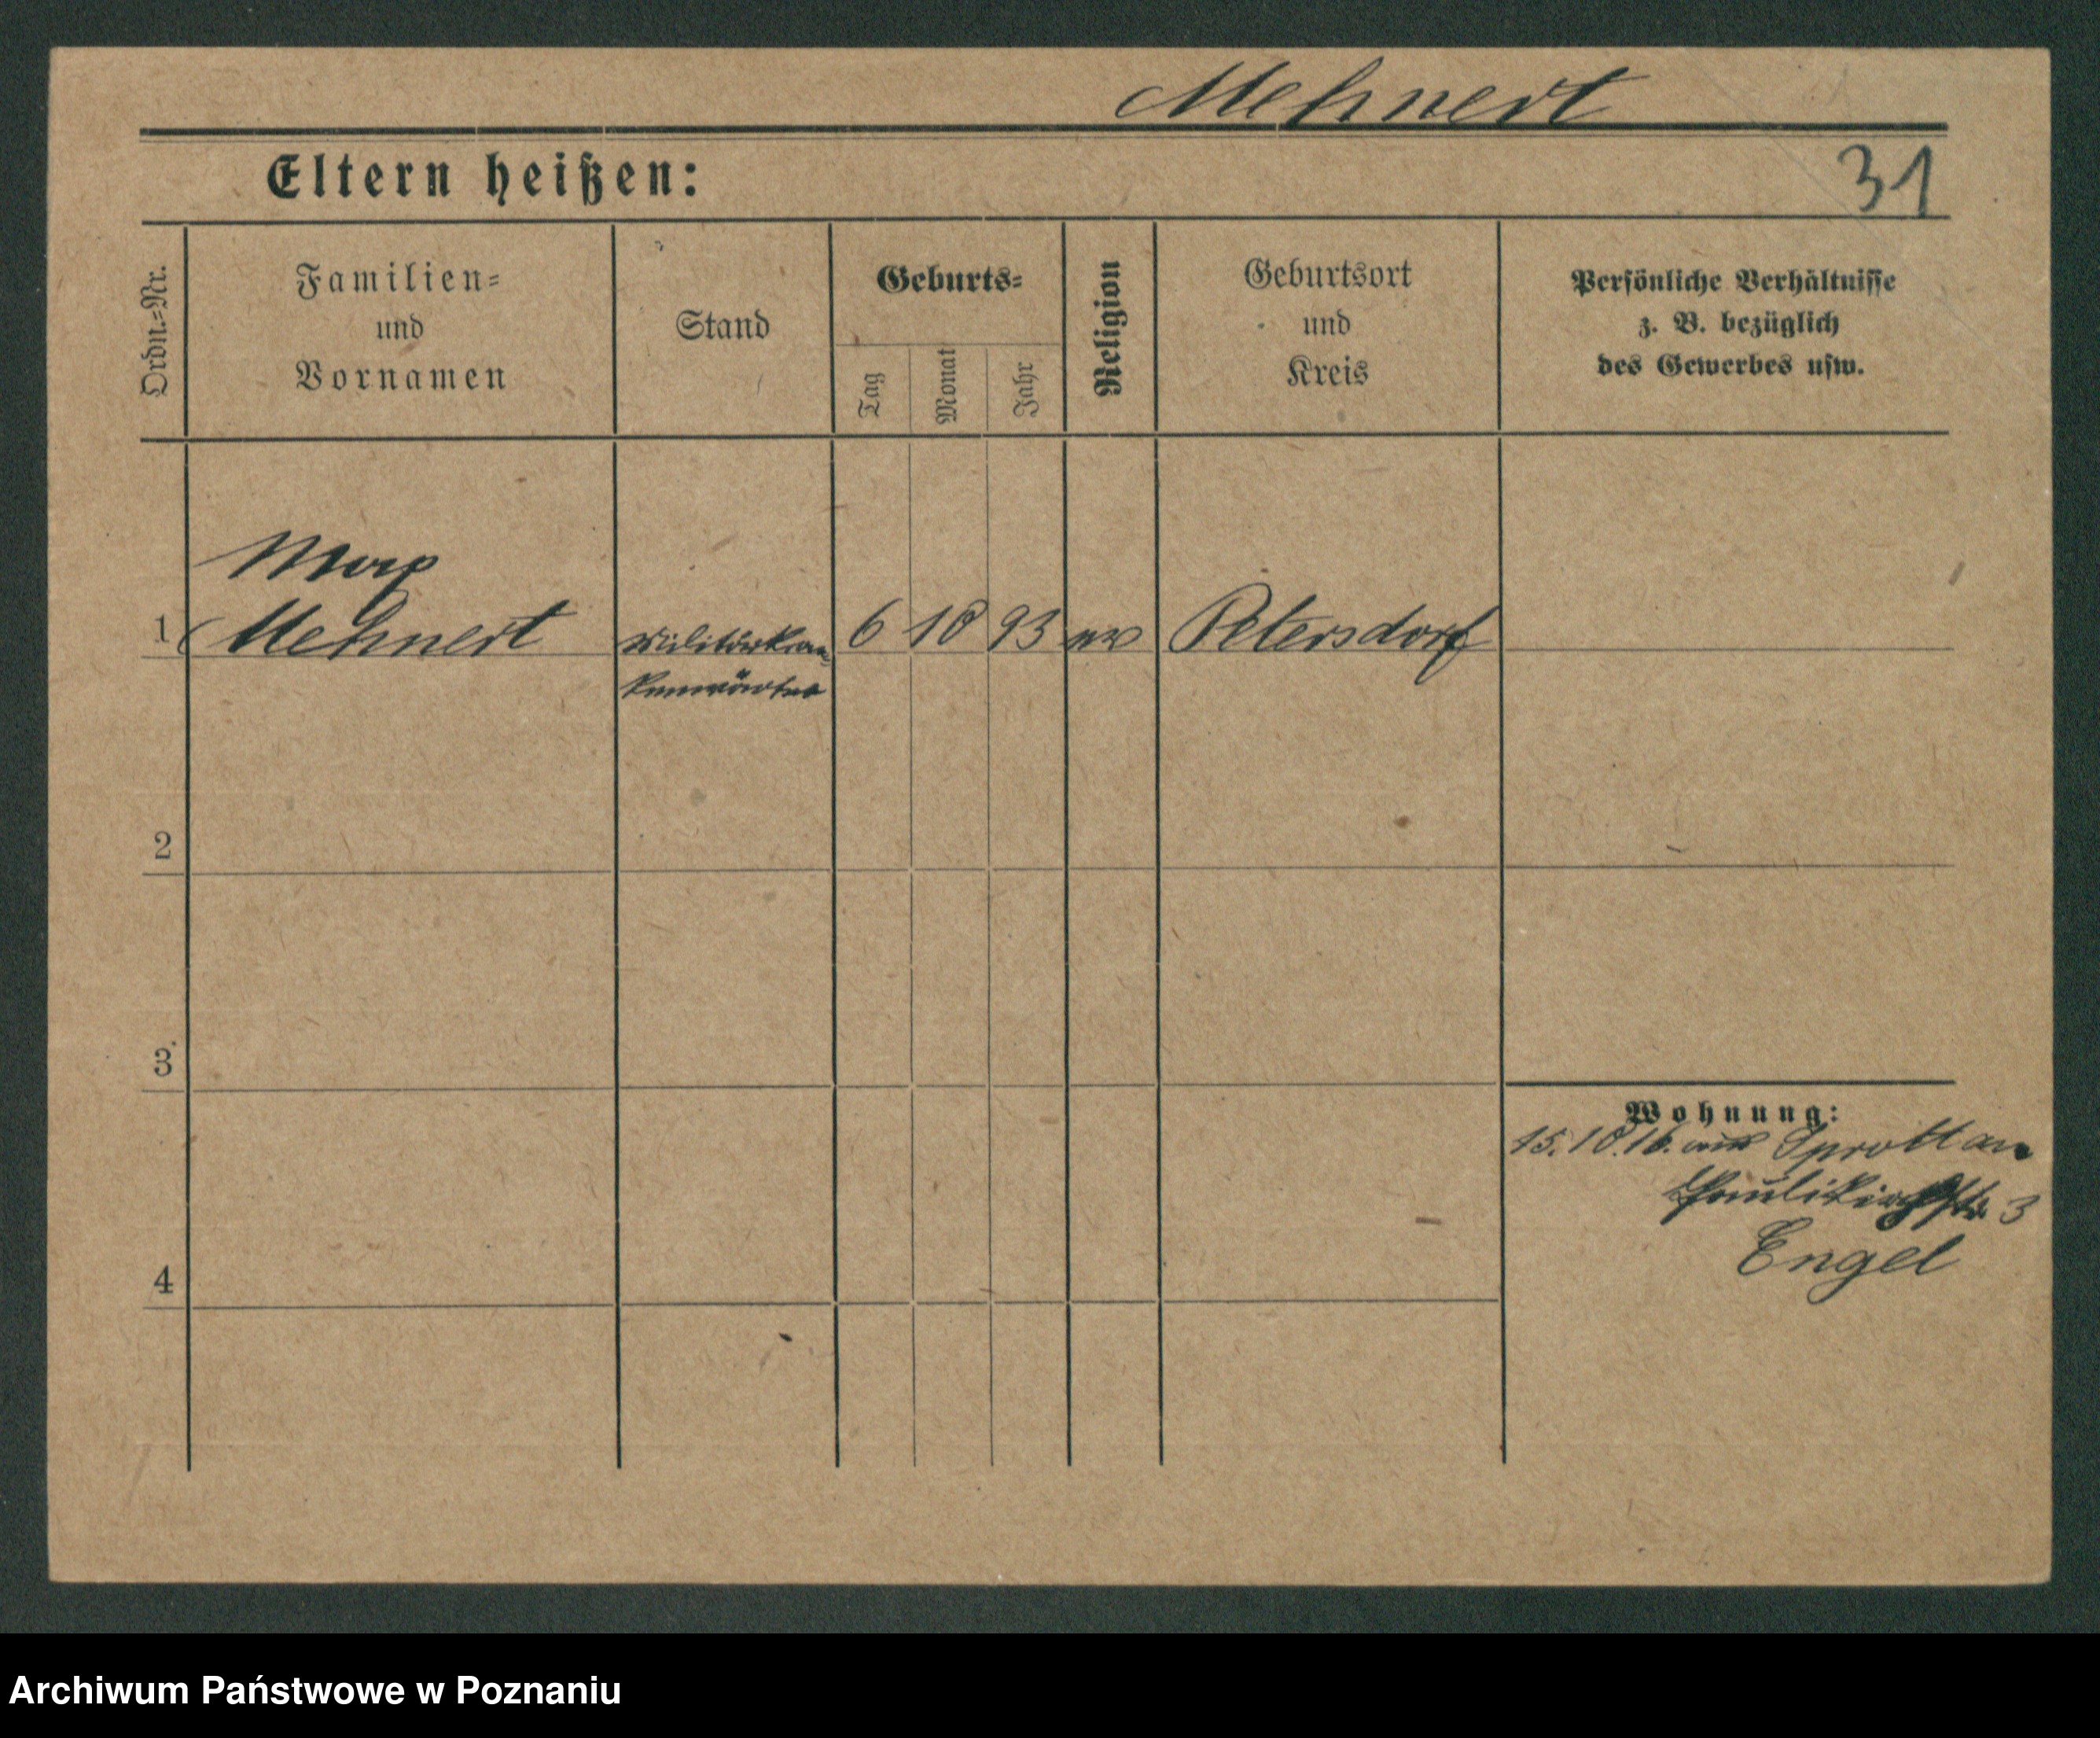 Mehnert
Eltern heißen:
31
Ordn.=Nr.
Familien=
und
Vornamen
Stand
Geburts=
Tag
Monat
Jahr
Religion
Geburtsort
und
Kreis
Persönliche Verhältnisse
z. B. bezüglich
des Gewerbes usw.
Max
1 Mehnert Militärkran= 6 10 93 ev Petersdorf
kenwärter
2
3
Wohnung:
15.10.16. aus Sprottau
Paulikirchstr. 3
Engel
4
Archiwum Państwowe w Poznaniu